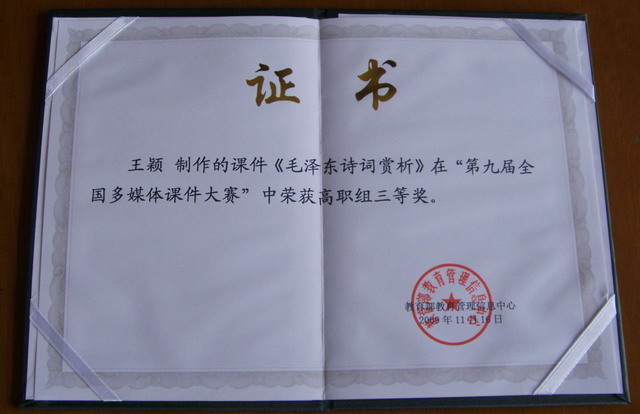 证 书
王颖 制作的课件《毛泽东诗词赏析》在“第九届全
国多媒体课件大赛”中荣获高职组三等奖。
教育部教育管理信息中心
2009年11月16日